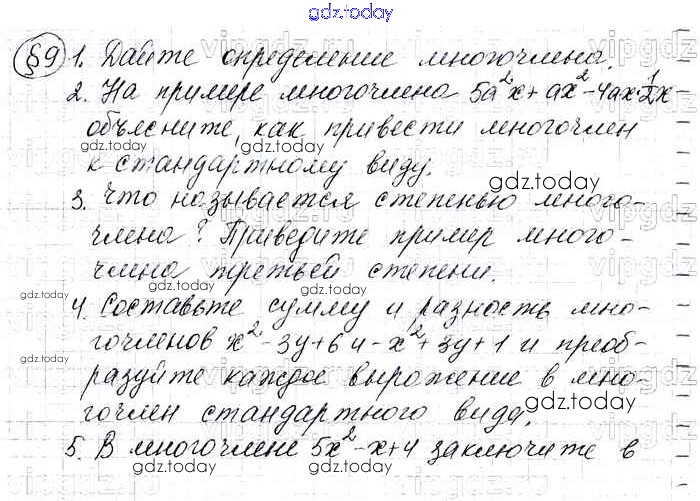 gdz.today
§9 1. Дайте определение многочлена.
2. На примере многочлена 5a²x+ax²-4ax·½x
объясните, как привести многочлен
к стандартному виду.
3. Что называется степенью много-
члена? Приведите пример много-
члена третьей степени.
4. Составьте сумму и разность мно-
гочленов x²-3y+6 и -x²+3y+1 и преоб-
разуйте каждое выражение в мно-
гочлен стандартного вида.
5. В многочлене 5x²-x+4 заключите в